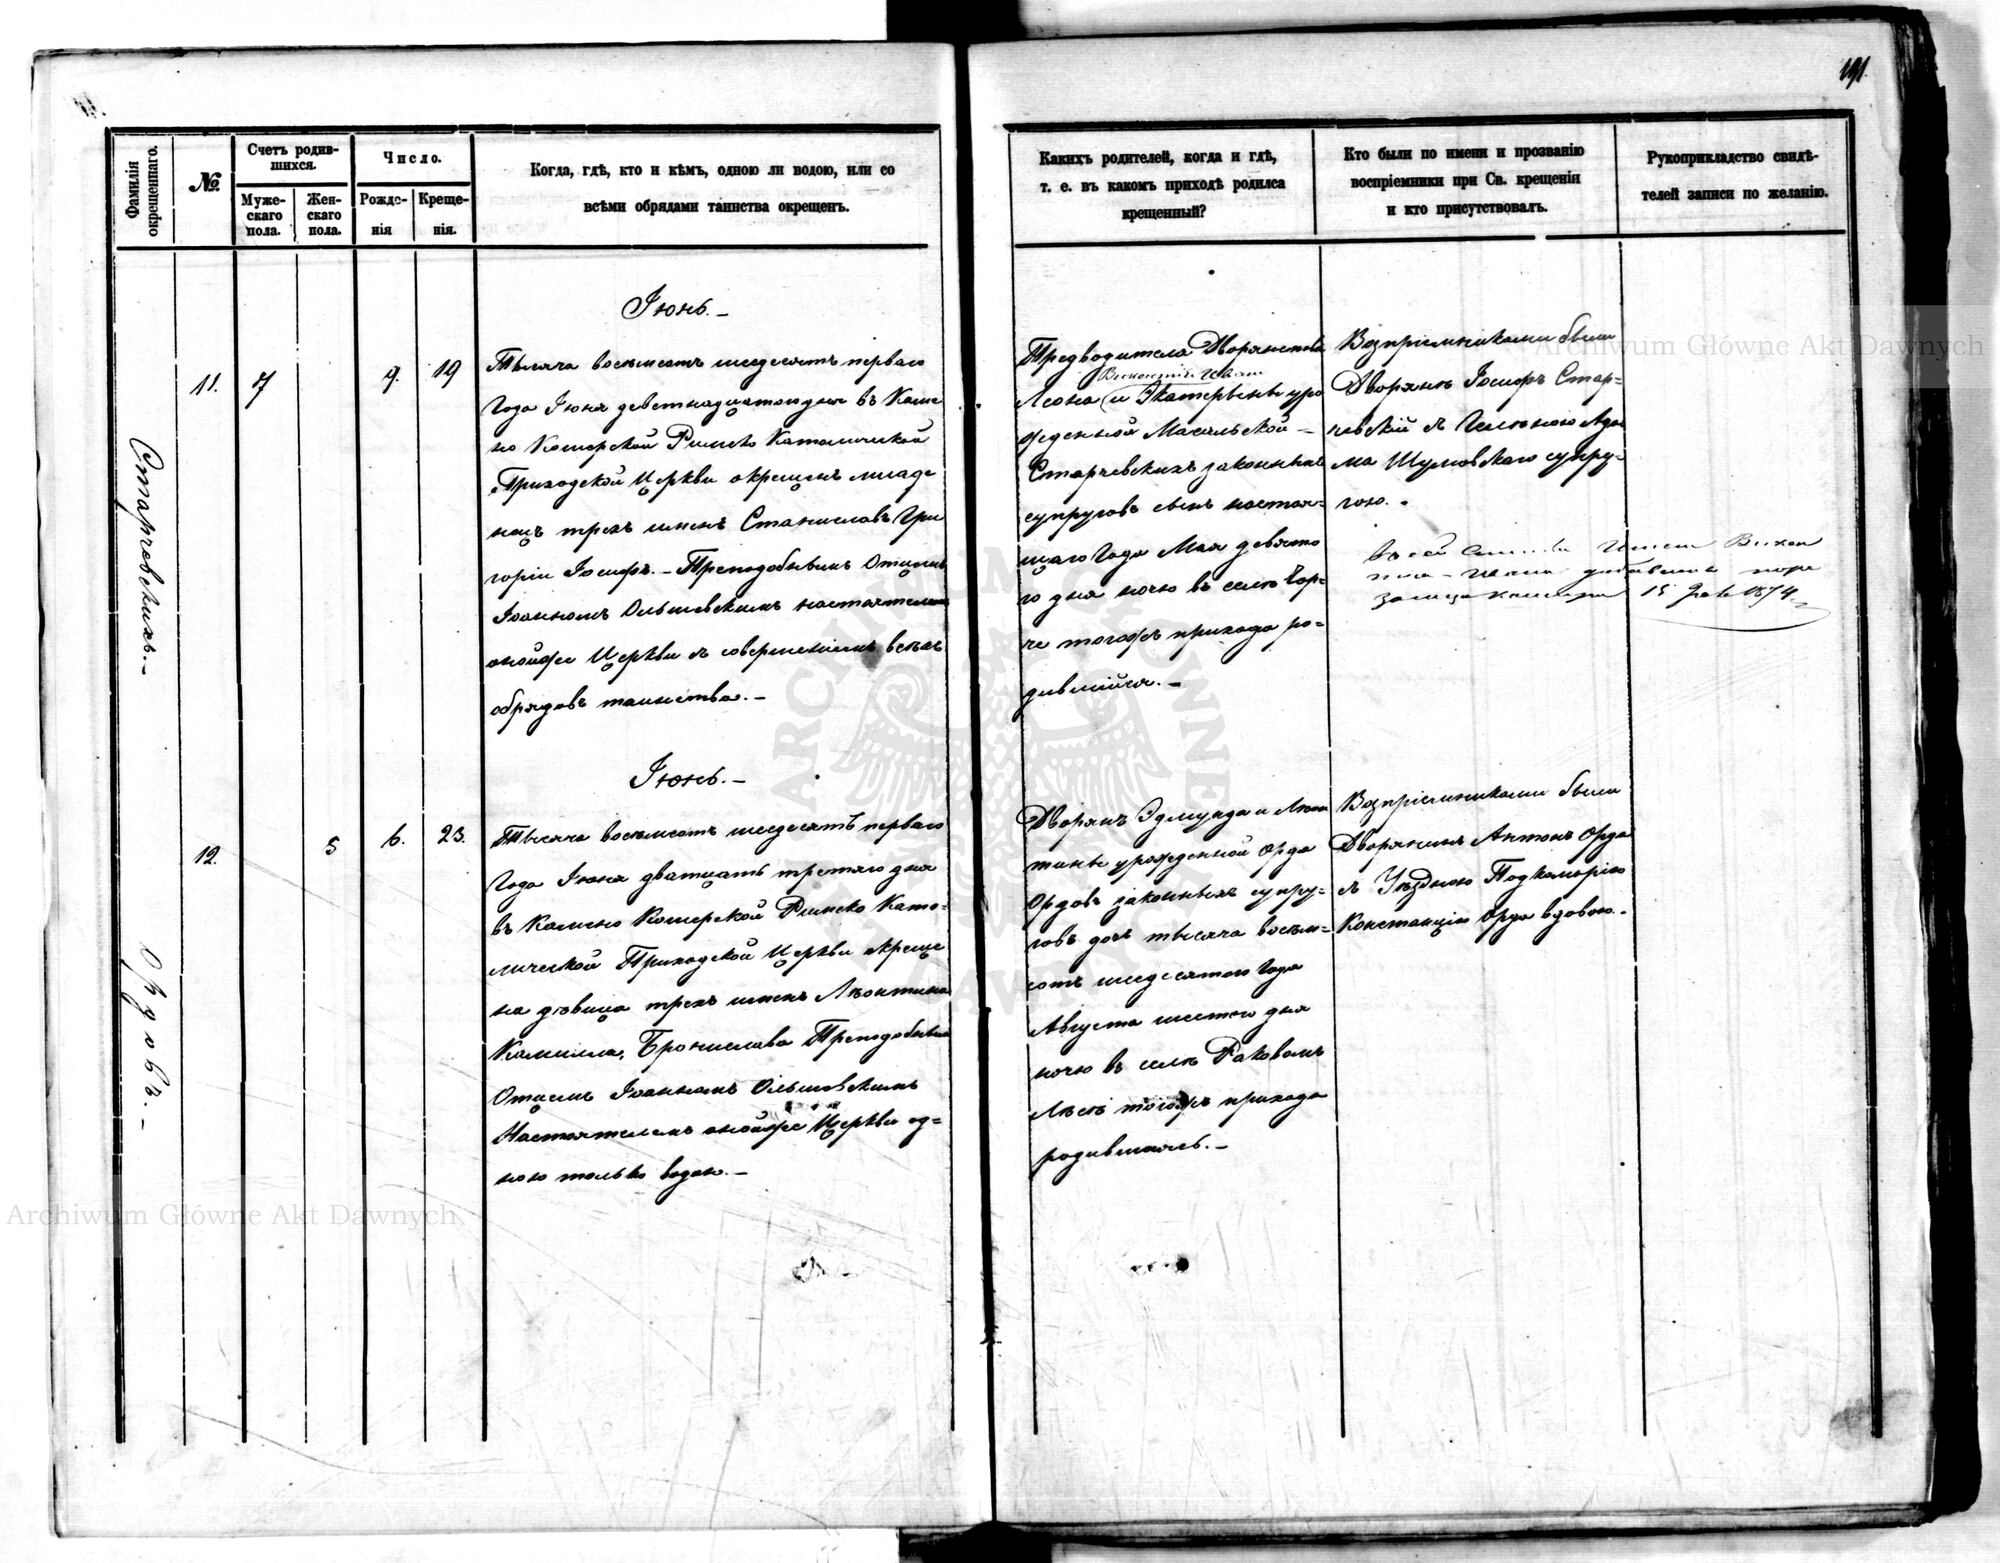 191.
Фамилія окрещеннаго.
№
Счетъ родив-
шихся.
Муже-
скаго
пола.
Жен-
скаго
пола.
Число.
Рожде-
нія
Креще-
нія.
Когда, гдѣ, кто и кѣмъ, одною ли водою, или со
всѣми обрядами таинства окрещенъ.
Каких​ъ родителей, когда и гдѣ,
т. е. въ какомъ приходѣ родился
крещенный?
Кто были по имени и прозванію
воспріемники при Св. крещеніи
и кто присутствовалъ.
Рукоприкладство свидѣ-
телей записи по желанію.
Старчевскихъ.-
11.
7
9.
19
Іюнь.-
Тысяча восемсотъ шесдесятъ перваго
Года Іюня девятнадцатого дня въ Каме
но Коширской Римско Католической
Приходской Церкви окрещенъ младе
нецъ трехъ именъ Станиславъ Гри
горій Іосифъ.- Преподобнымъ Отцемъ
Іоанномъ Ольшевскимъ настоятелемъ
онойже Церкви съ совершеніемъ всѣхъ
обрядовъ таинства.-
Предводителя Дворянства
Викентія Ивана
Леона и Екатерины уро
жденной Масальской -
Старчевскихъ законныхъ
супруговъ сынъ настоя-
щаго Года Мая девято
го дня ночю въ селѣ Чор-
че тогожъ прихода ро-
дившійся.-
Возпріемниками были
Дворянъ Іосифъ Стар-
чевскій съ Геленою Ада
ма Шумовскаго супру-
гою.-
1874.
Ордовъ.-
12.
5
6.
23.
Іюнь.-
Тысяча восемсотъ шесдесятъ перваго
Года Іюня дватцать третяго дня
въ Камено Коширской Римско Като-
лической Приходской Церкви окреще
на дѣвица трехъ именъ Леонтина
Камилла, Бронислава Преподобнымъ
Отцемъ Іоанномъ Ольшовскимъ
Настоятелемъ онойже Церкви од-
ною только водою.-
Дворянъ Эдмунда и Леон
тины урожденной Орда
Ордовъ законныхъ супру-
говъ дочь тысяча восем-
сотъ шесдесятого Года
Августа шестого дня
ночю въ селѣ Раковомъ
Лѣсѣ тогожъ прихода
родившаясь.-
Возпріемниками были
Дворянинъ Антонъ Орда
съ Уѣздною Подкоморію
Констанціею Орда вдовою.-
Archiwum Główne Akt Dawnych
Archiwum Główne Akt Dawnych